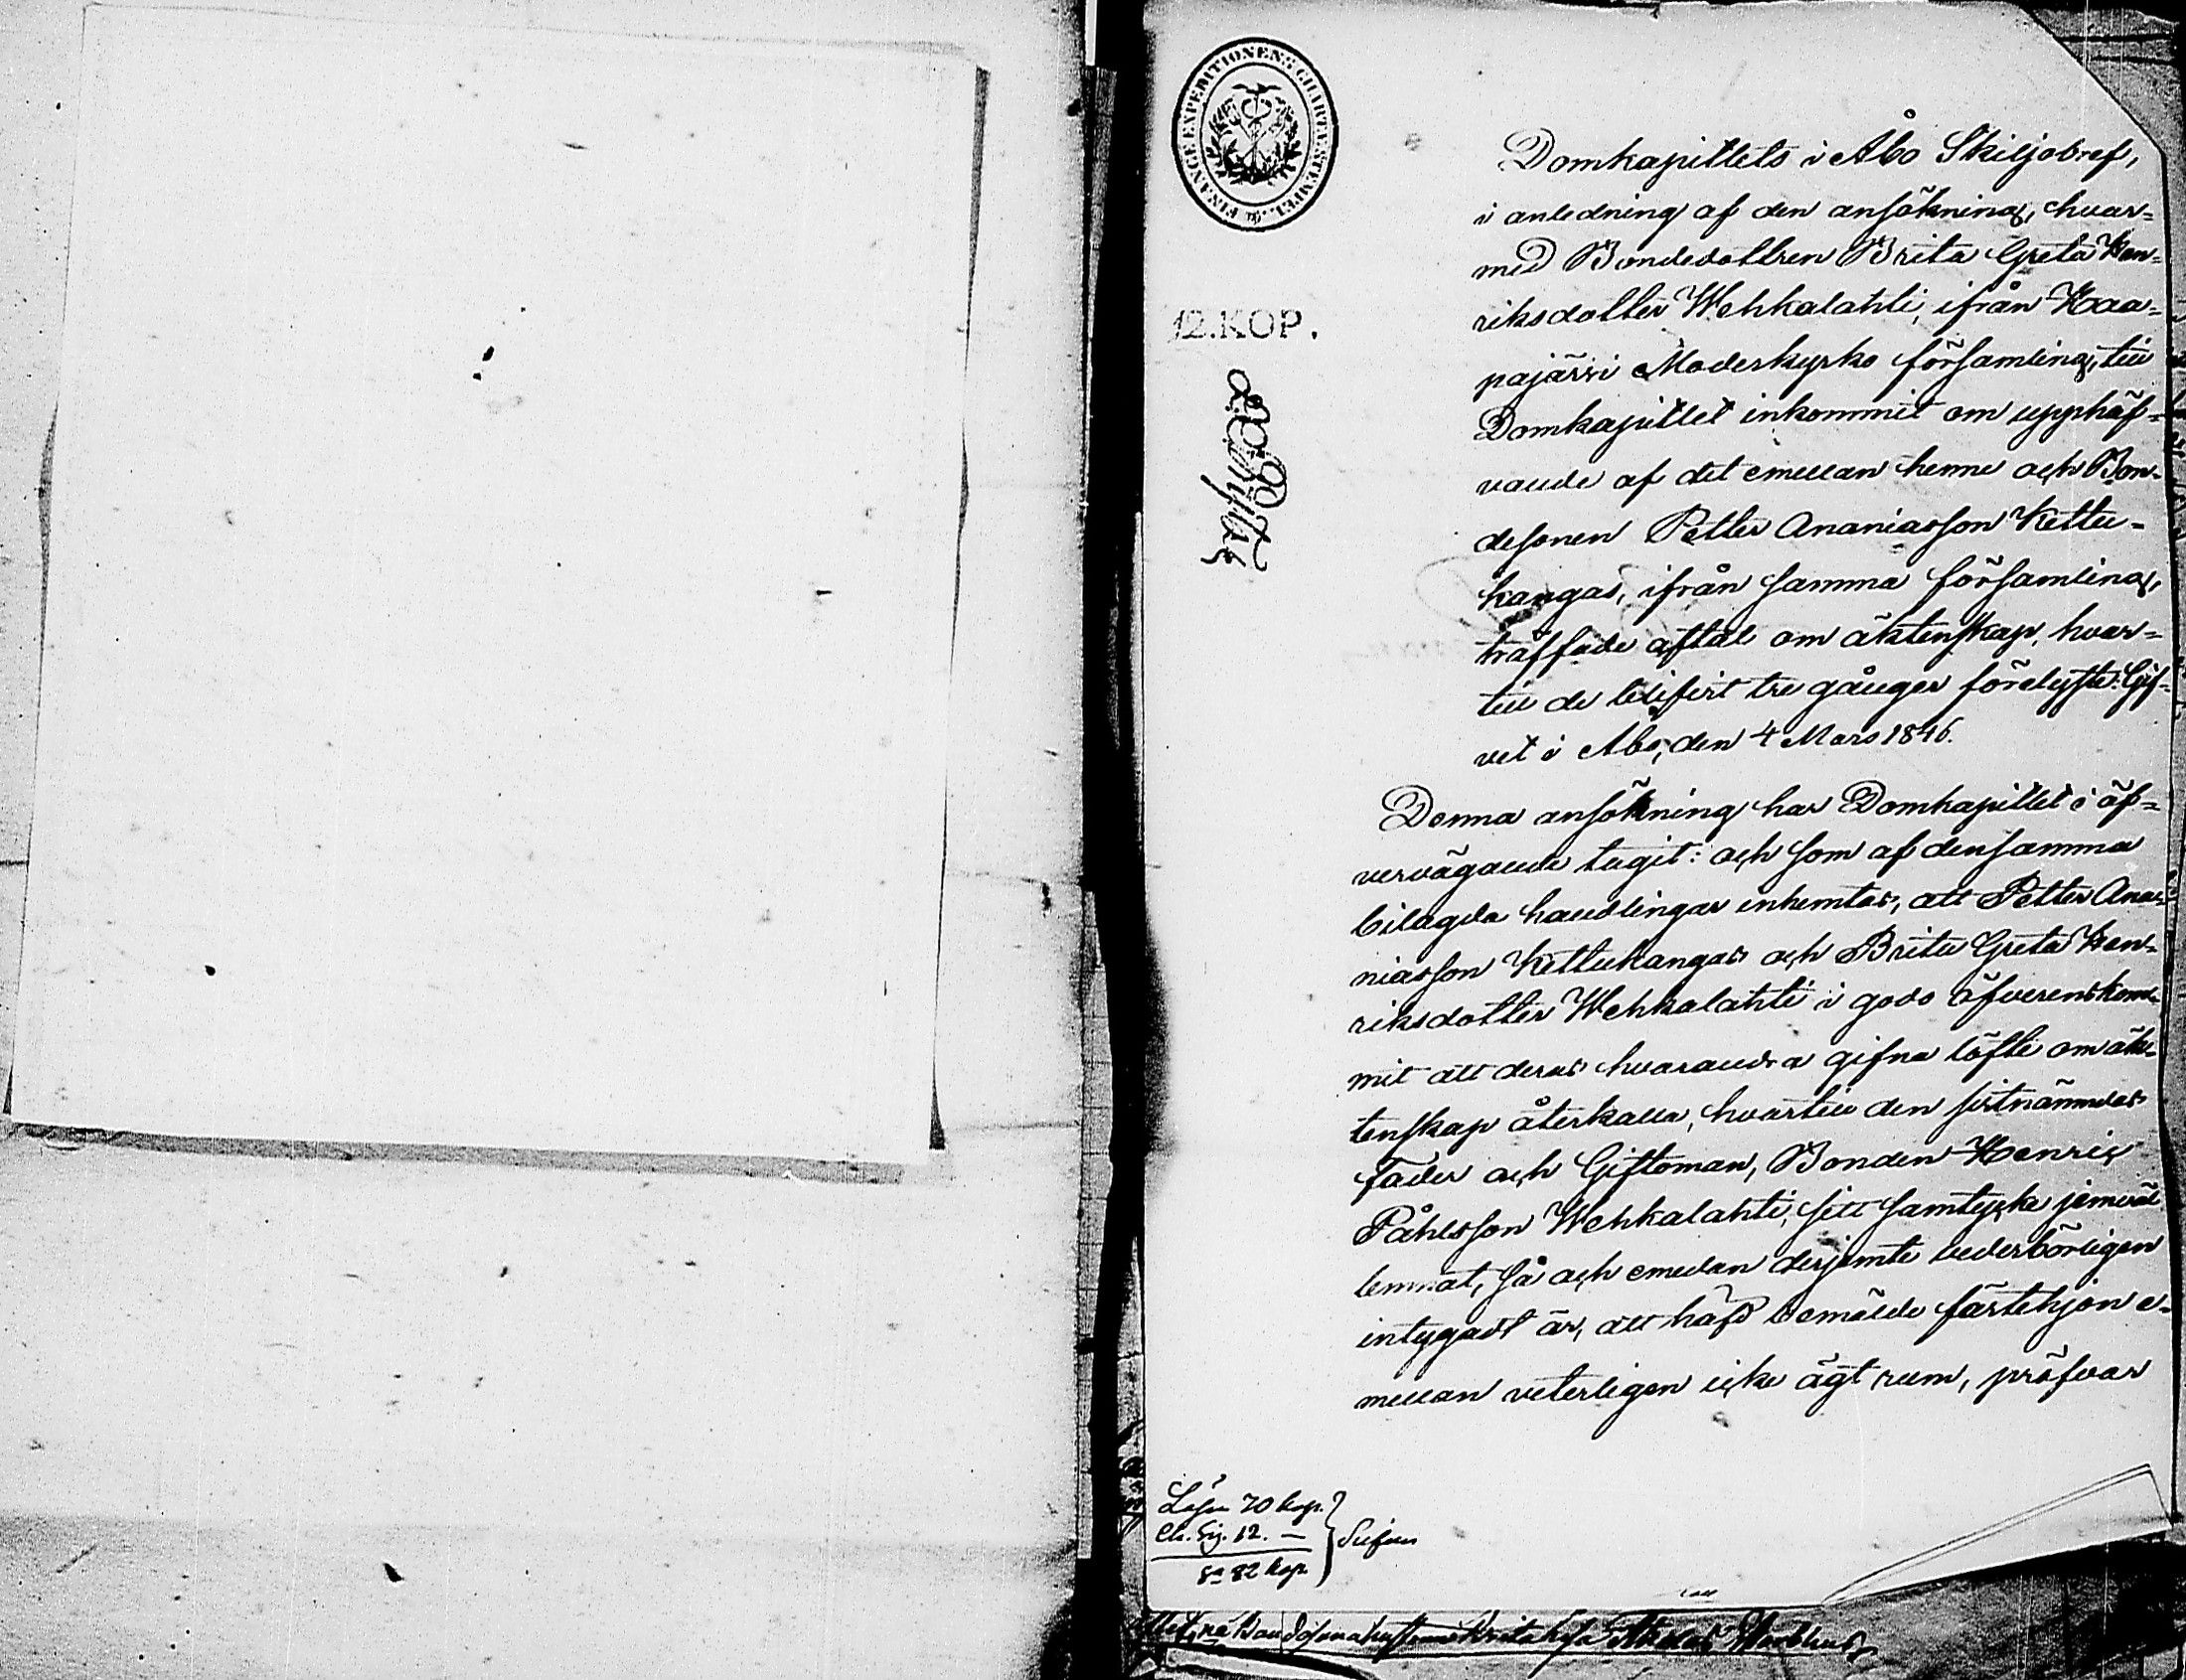 FINANCE EXPEDITIONENS CHARTÆ STEMPEL.
12. KOP.
Domkapitlets i Åbo Skiljobref,
i anledning af den ansökning, hvar=
med Bondedottren Brita Greta Hen=
riksdotter Wehkalahti, ifrån Haa=
pajärvi Moderkyrko församling, till
Domkapitlet inkommit om upphäf=
vande af det emellan henne och Bon=
desonen Petter Ananiasson Kettu=
kangas, ifrån samma församling,
träffade aftal om äktenskap, hvar=
till de blifvit tre gånger förelyste: Gif=
vet i Åbo, den 4 Mars 1846.
Denna ansökning har Domkapitlet i öf=
vervägande tagit: och som af densamma
bilagda handlingar inhemtas, att Petter Ana=
niasson Kettukangas och Brita Greta Hen=
riksdotter Wehkalahti i godo öfverenskom=
mit att deras hvarandra gifna löfte om äk=
tenskap återkalla, hvartill den sistnämndas
Fader och Giftoman, Bonden Henric
Påhlsson Wehkalahti, sitt samtycke jemväl
lemnat, så och emedan derjemte vederbörligen
intygadt är, att häfd bemälde fästehjon e=
mellan veterligen icke ägt rum, pröfvar
Lösen 70 kop.
Ch. Sig. 12. —
Sa 82 kop.